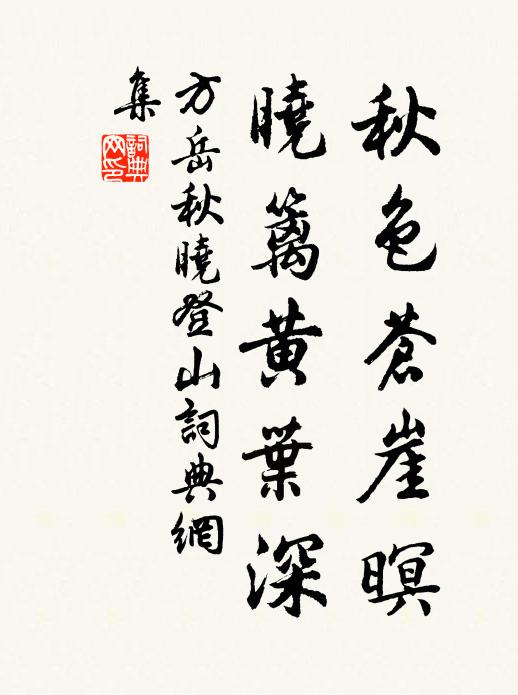 秋色蒼崖暝
曉籬黃葉深
方岳秋曉登山詞典網
集
詞典網印